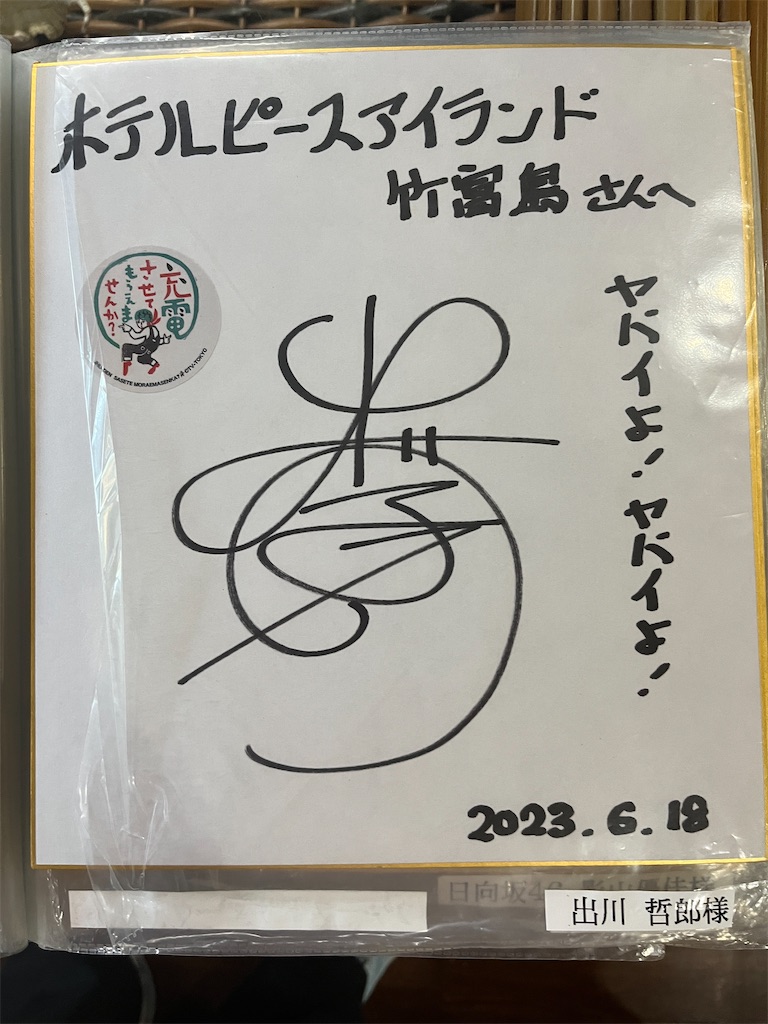 ホテルピースアイランド
竹富島さんへ
充電
させて
もらえま
せんか?
SASETE MORAEMASENKA? © TV-TOKYO
ヤバイよ!ヤバイよ!
2023.6.18
日向坂4
出川 哲郎様